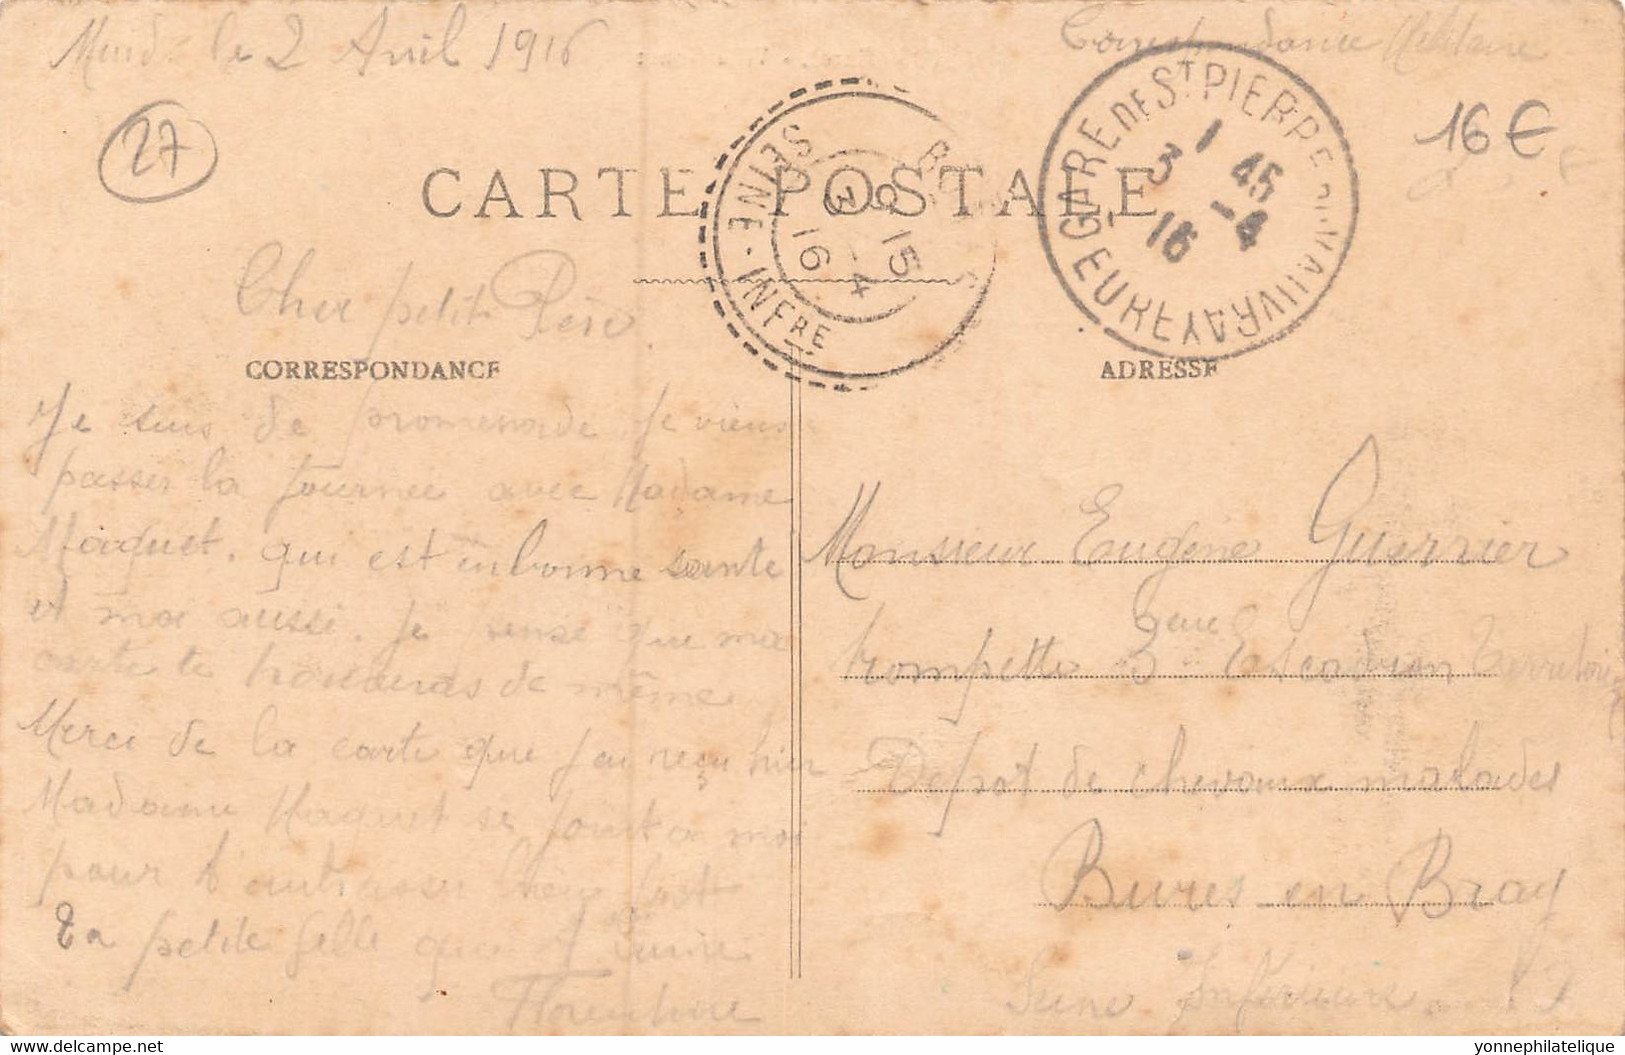 Muids le 2 Avril 1916
Correspondance Militaire
27
16€
CARTE POSTALE
SEINE-INFRE
8 15
3 -4
16
GARE DE ST PIERRE DU VAUVRAY
EURE
1 45
3 -4
16
Cher petit Père.
CORRESPONDANCE
ADRESSE
Je suis de promenade je viens
passer la tournée avec Madame
Maquet. qui est en bonne sante
et moi aussi. Je pense que ma
carte te trouveras de même
Merci de la carte que j'ai reçu hier
Madame Maquet se joint a moi
pour t'embrasser bien fort
Ta petite fille qui t'aime.
Monsieur Eugène Guerrier
trompette 3eme Escadron Territorial
Depot de chevaux malades
Bures en Bray
Seine Inférieure
Delcampe.net
yonnephilatelique